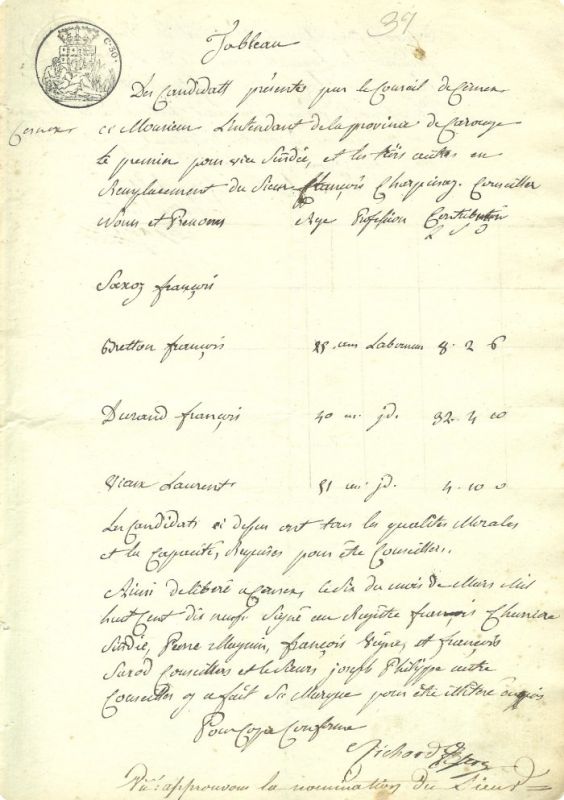 39
C. 50.
Tableau
Des Candidats présentés par le Conseil de Cernex
Cernex
a Monsieur L'intendant de la province de Carouge
le premier pour vice Sindic, et les trois autres en
Remplacement du Sieur françois Charpinaz Conseiller
Noms et Prenoms Age Profession Contribution
L S D
Saxoz françois
Bretton françois ans Laboureur 8. 2 6
Durand françois 40 id. 32. 4 10
Viaux Laurent 51 id. 4. 10 0
Les Candidats ci dessus ont tous les qualités Morales
et la Capacité, Requises pour être Conseillers.
Ainsi deliberé a Cernex, le dix du mois de Mars Mil
huit Cent dix neuf. Signé au Registre françois
Sindic, Pierre Magnin, françois Vigne, et françois
Conseillers et le Sieur joseph Philippe autre
Conseiller y a fait Sa Marque pour être illiteré
Pour Copie Conforme
Richard
Vu: approuvons la nomination du Sieur